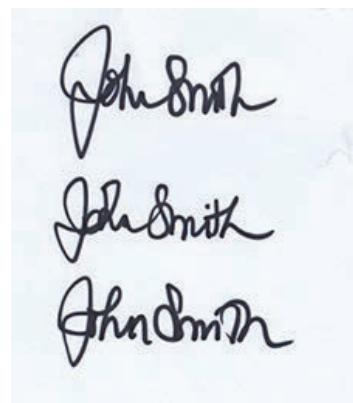 John Smith
John Smith
John Smith